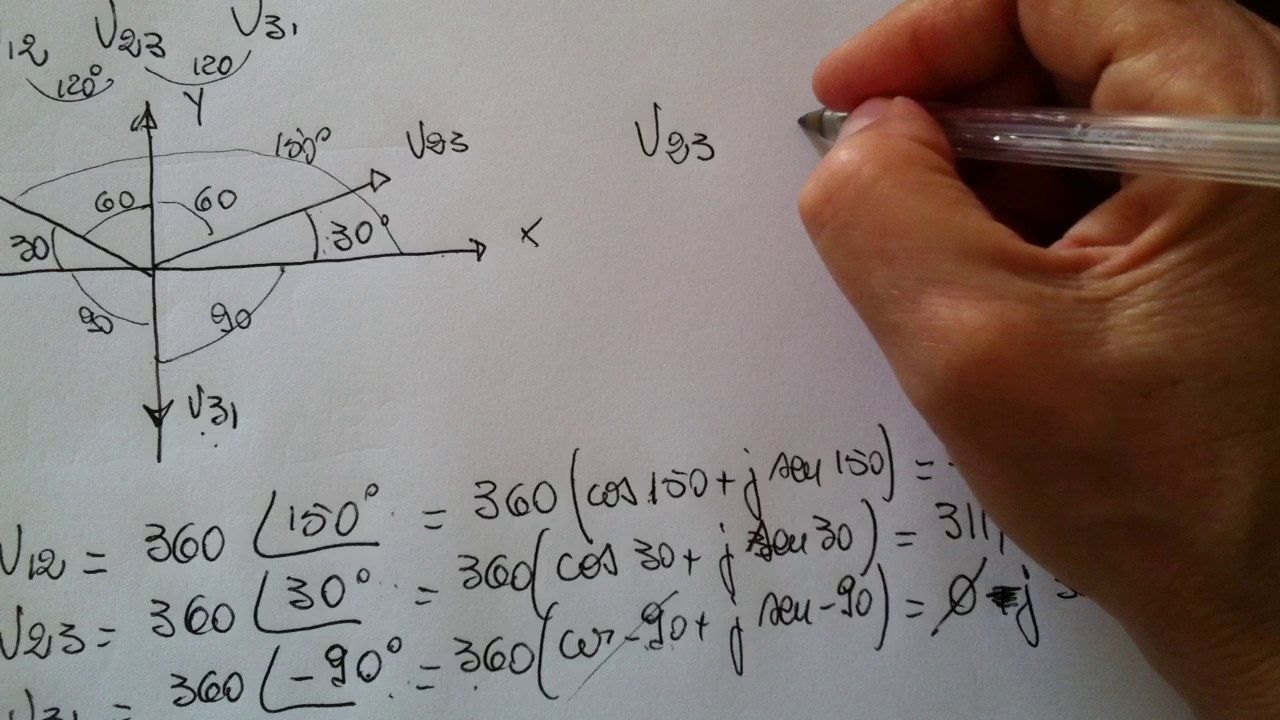 12 U23 U31
120° 120
Y
150° U23 U23
60 60
30 30° x
90 90
U31
U12 = 360 ∠150° = 360 (cos 150 + j sen 150) = -
U23 = 360 ∠30° = 360 (cos 30 + j sen 30) = 311,
U31 = 360 ∠-90° = 360 (cos -90 + j sen -90) = 0 - j 3